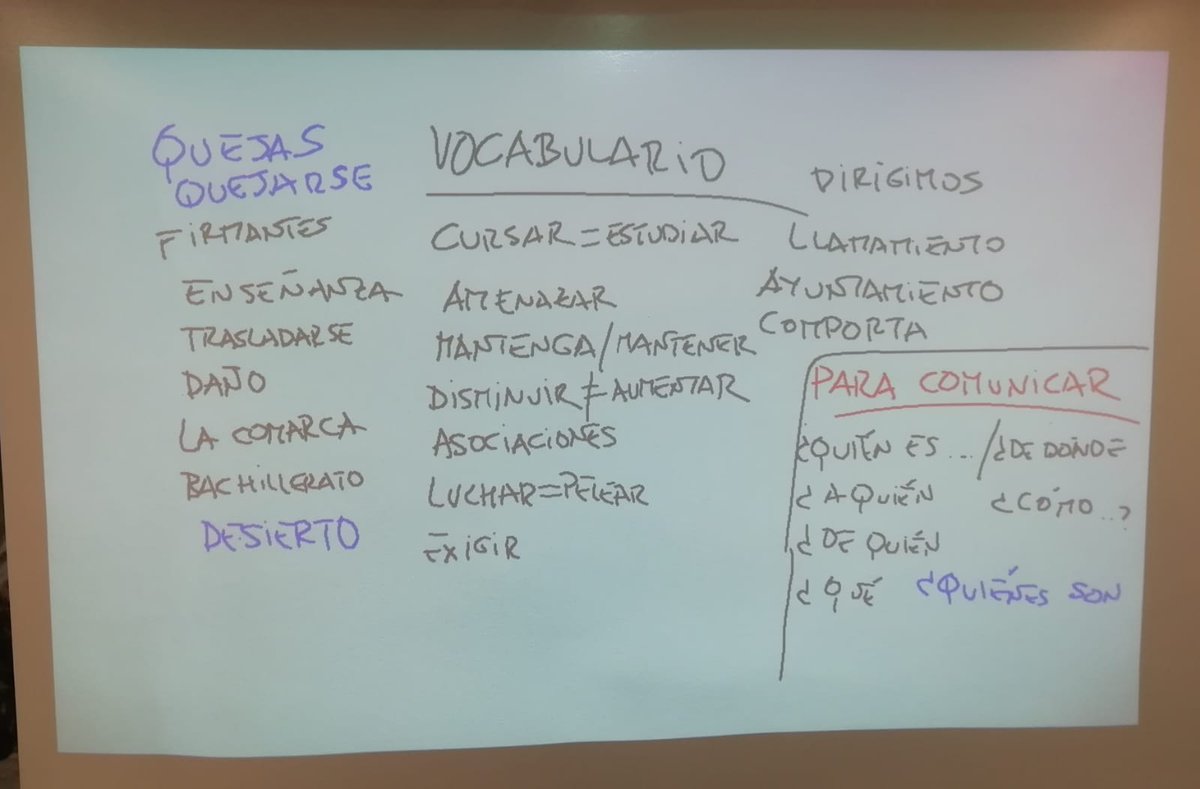 QUEJAS
QUEJARSE
FIRMANTES
ENSEÑANZA
TRASLADARSE
DAÑO
LA COMARCA
BACHILLERATO
DESIERTO
VOCABULARIO
CURSAR = ESTUDIAR
AMENAZAR
MANTENGA/MANTENER
DISMINUIR ≠ AUMENTAR
ASOCIACIONES
LUCHAR = PELEAR
EXIGIR
DIRIGIMOS
LLAMAMIENTO
AYUNTAMIENTO
COMPORTA
PARA COMUNICAR
¿QUIÉN ES ... / ¿DE DÓNDE
¿A QUIÉN ¿CÓMO...?
¿DE QUIÉN
¿QUÉ ¿QUIÉNES SON